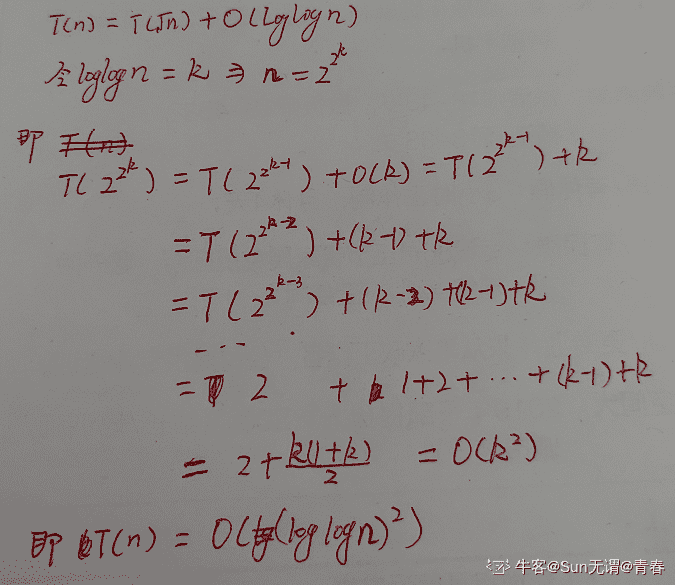 T(n) = T(√n) + O(loglogn)
令loglogn = k ⇒ n = 2^{2^k}
即 T(n)
T(2^{2^k}) = T(2^{2^{k-1}}) + O(k) = T(2^{2^{k-1}}) + k
= T(2^{2^{k-2}}) + (k-1) + k
= T(2^{2^{k-3}}) + (k-2) + (k-1) + k
...
= 2 + 1+2+ ... + (k-1)+k
= 2 + k(1+k)/2 = O(k^2)
即 T(n) = O((loglogn)^2)
牛客@Sun无谓@青春